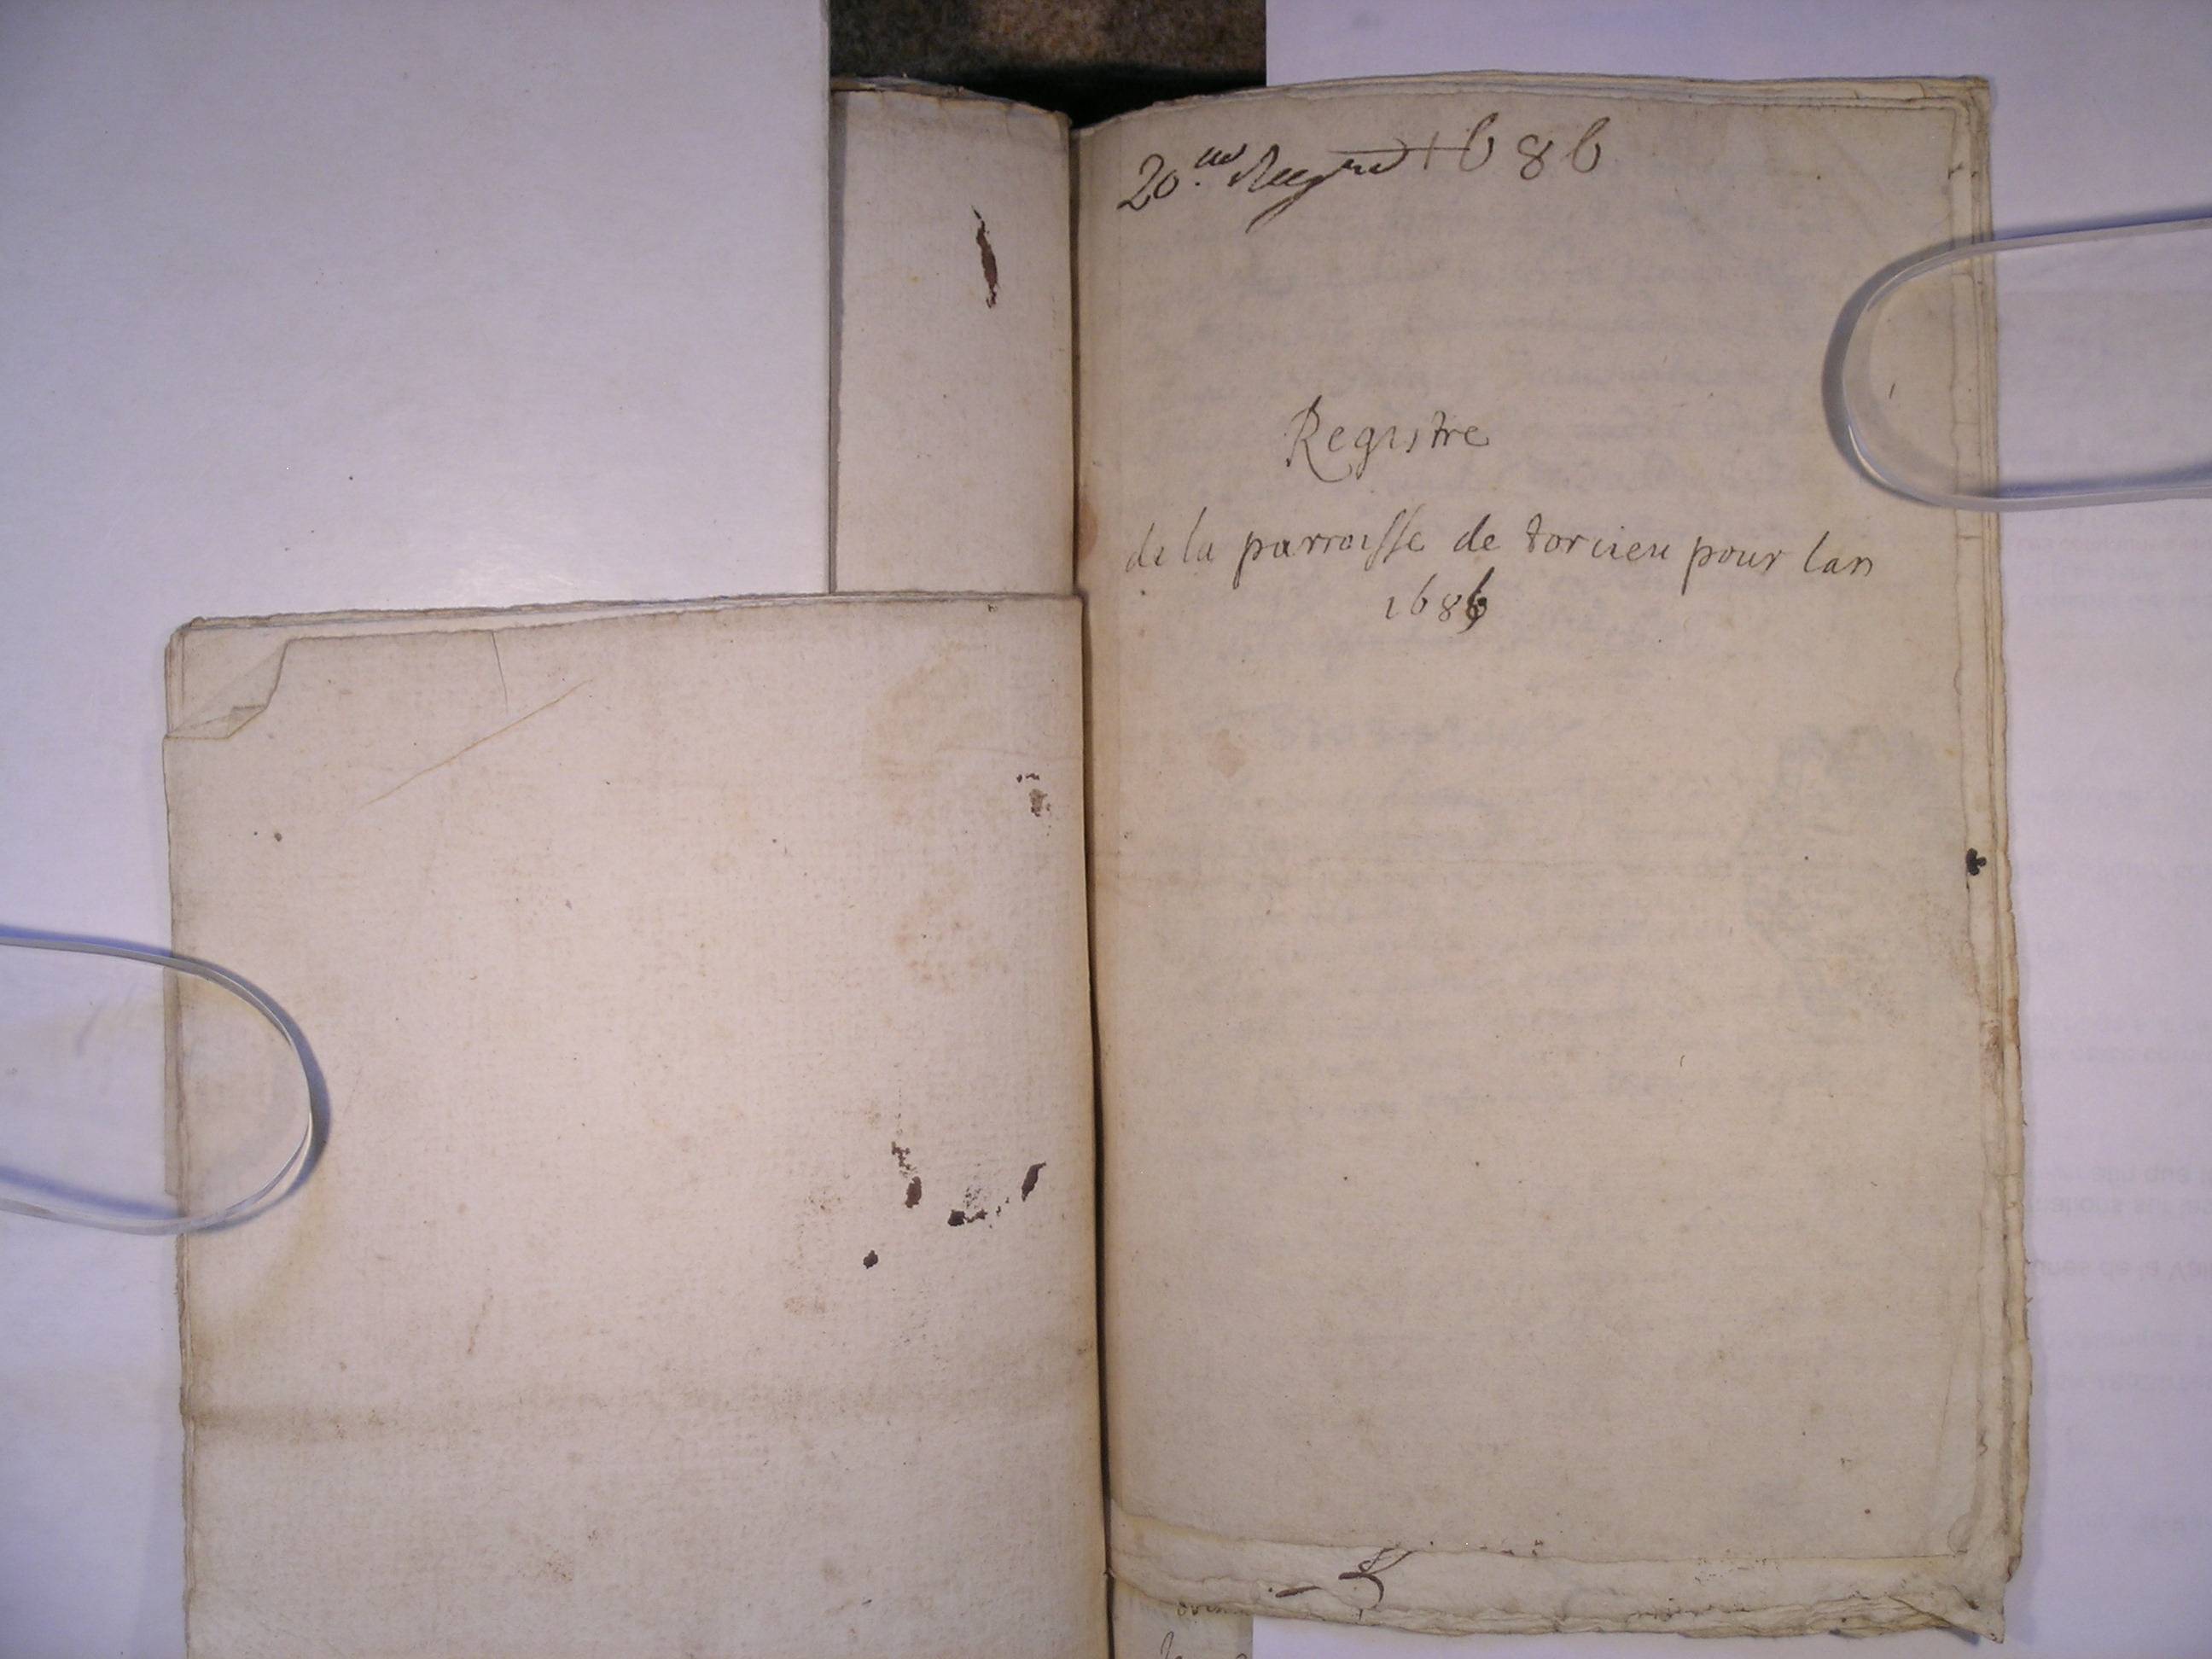 20.me Regre 1686
Registre
de la parroisse de torcieu pour lan
1686